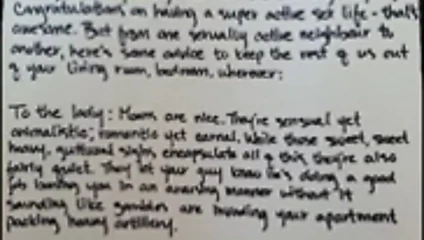 Congratulations on having a super active sex life - that's
awesome. But from one sexually active neighbour to
another, here's some advice to keep the rest of us out
of your living room, bedroom, wherever:
To the lady: Moans are nice. They're sensual yet
animalistic; romantic yet carnal. While those sweet, sweet
heavy, guttural sighs encapsulate all of this, they're also
fairly quiet. They let your guy know he's doing a good
job you in an manner without it
sounding like zombies are invading your apartment
packing heavy artillery.